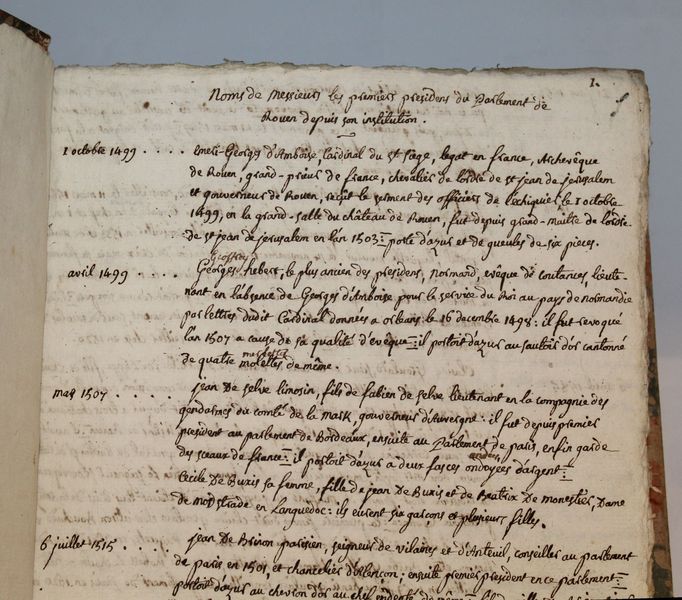 1.
Noms de Messieurs les premiers presidens du Parlement de
Rouen depuis son institution.
1 octobre 1499 . . . . Emeri-Georges d'Amboise, Cardinal du st siege, legat en france, Archevêque
de Rouen, grand-prieur de france, chevalier de l'ordre de st jean de jerusalem
et gouverneur de Rouen, reçut le serment des officiers de l'echiquier le 1 octobre
1499, en la grand-salle du château de Rouen, fut depuis grand-maitre de l'ordre
de st jean de jerusalem en l'an 1503: porte d'azur et de gueules de six pieces.
avril 1499 . . . . Georges hebert, le plus ancien des presidens, normand, evêque de coutances, lieute-
nant en l'absence de Georges d'Amboise pour le service du Roi au pays de normandie
par lettres dudit Cardinal données a orleans le 16 decembre 1498: il fut revoqué
l'an 1507 a cause de sa qualité d'evêque: il portoit d'azur au sautoir d'or cantonné
de quatre molettes de même.
mars 1507 . . . . jean De Selve limosin, fils de fabien de selve lieutenant en la compagnie des
gendarmes du comté de la mark, gouverneur d'Auvergne: il fut depuis premier
president au parlement de Bordeaux, ensuite au Parlement de paris, enfin garde
des sceaux de france: il portoit d'azur a deux fasces ondoyées d'argent:
Cecile De Buxis sa femme, fille de jean De Buxis et de Beatrix De monestiés, Dame
de modstrade en Languedoc: ils eurent six garçons et plusieurs filles.
6 juillet 1515 . . . . jean De Brinon parisien, seigneur de vilaines et d'Anteuil, conseiller au parlement
de paris en 1501, et chancelier d'Alençon; ensuite premier president en ce parlement:
portoit d'azur au chevron d'or au chef endenté de même